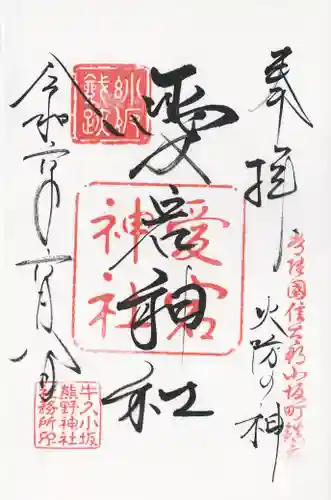 奉拝
火防の神
常陸國信太郡小坂町鎮座
愛宕神社
愛宕
神社
小坂
城跡
令和六年六月八日
牛久小坂
熊野神社
社務所印